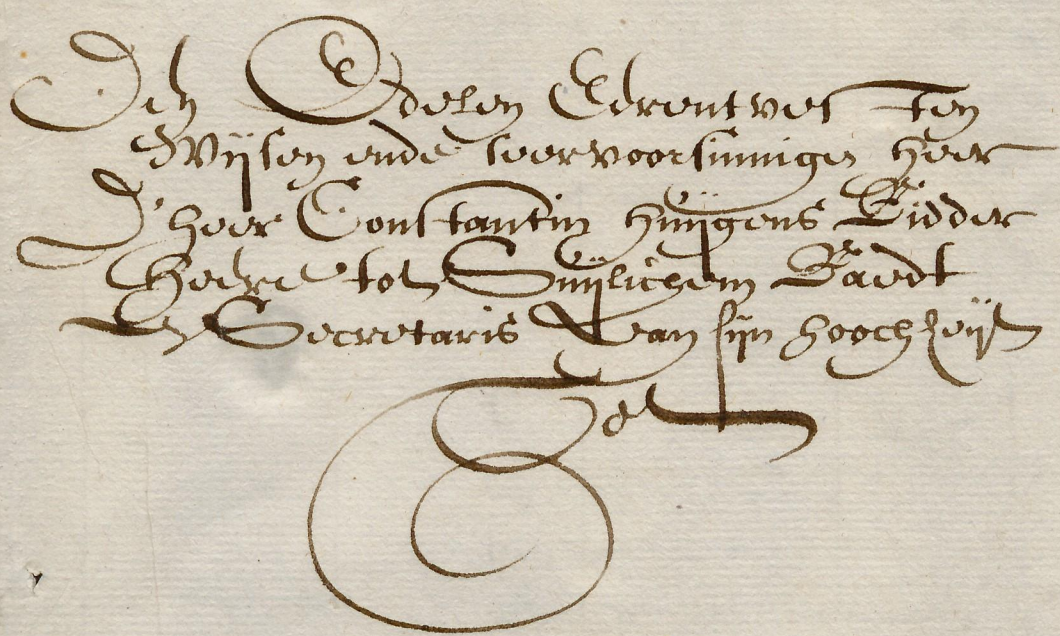 Den Edelen Erentvest ten
Wijsen ende seer voorsinnigen Heer
D'heer Constantin Huijgens Ridder
Heere tot Suijlichem Raedt
En Secretaris van sijn hoocheijt